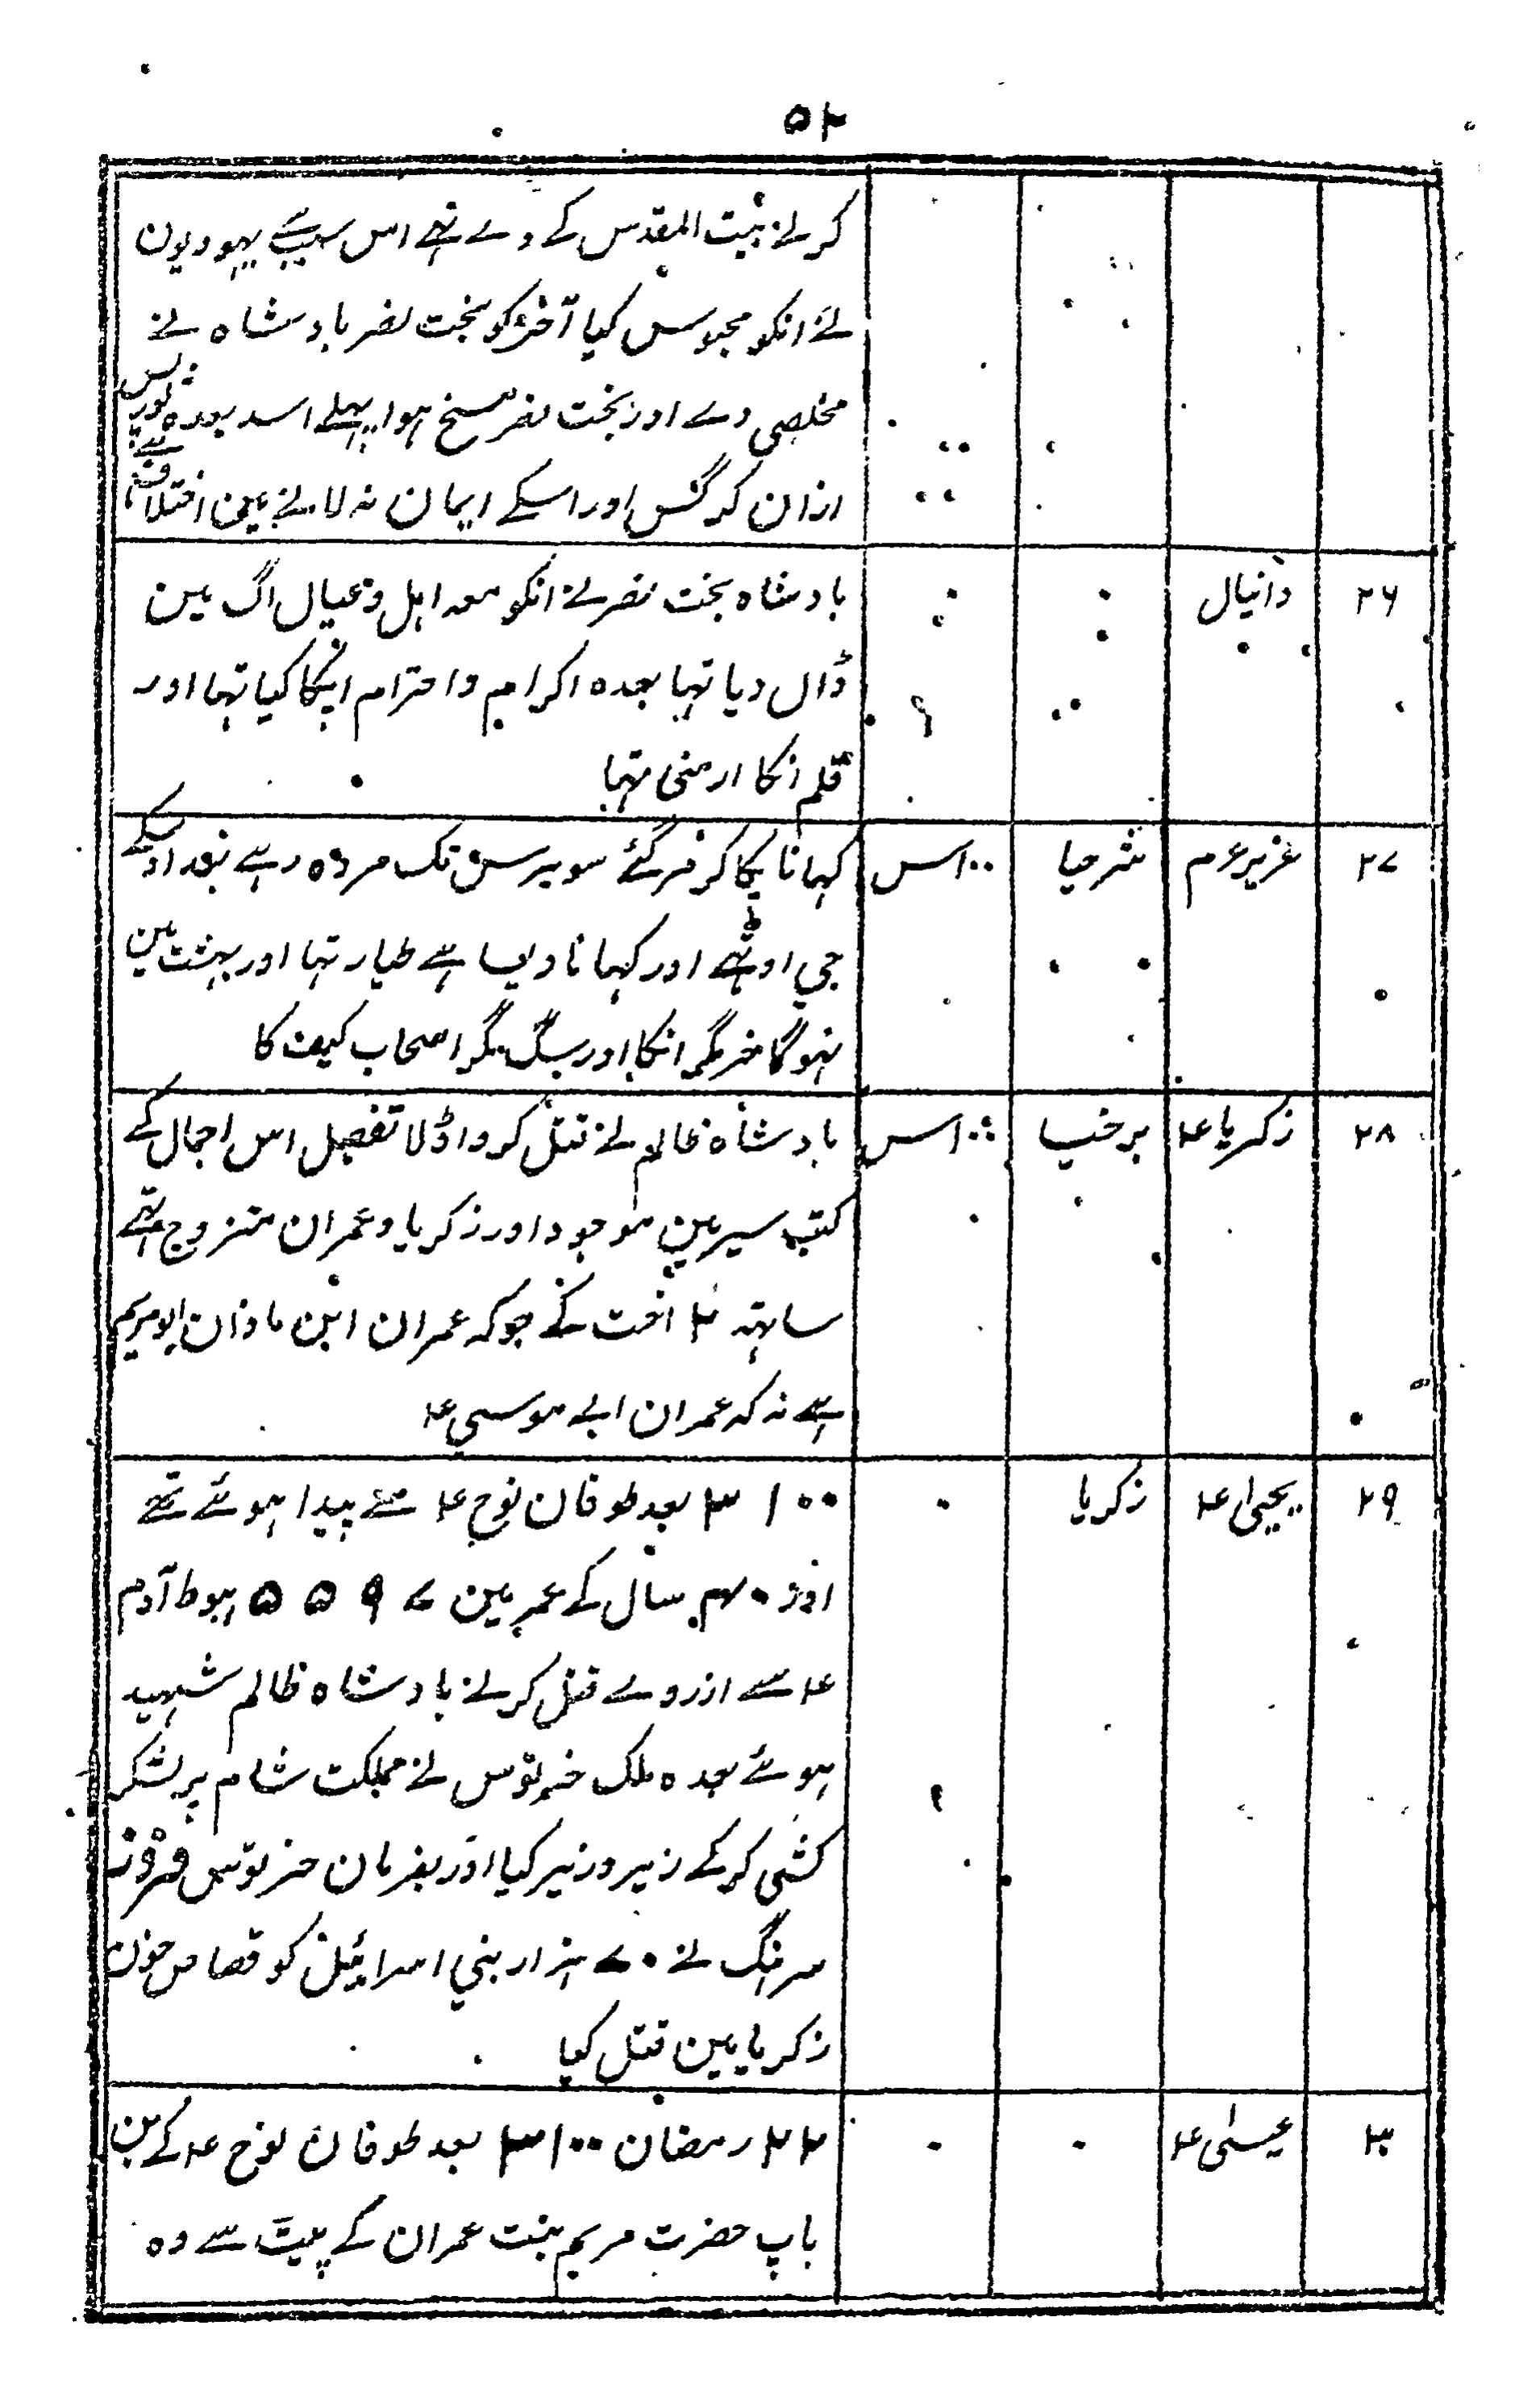 ۵۲
کرنے بیت المقدس کے دے تہے اس سبب سے یہودیون
نے انکو محبوس کیا آخر کو بخت نصر بادشاہ نے
مخلصی دے اور بخت نصر مسخ ہوا پہلے اسد بعدہ ثور پس
ازان کرگس اور اسکے ایمان نہ لانے مین اختلاف ہے
۲۶ دانیال بادشاہ بخت نصر نے انکو معہ اہل و عیال اگ مین
ڈال دیا تہا بعدہ اکرام و احترام انکا کیا تہا اور
قلم انکا ارمنی تہا
۲۷ عزیر عم شرحیا ۱۰۰س کہانا پکا کر مر گئے سو برس تک مردہ رہے بعد اوسکے
جی اوٹہے اور کہانا ویسا ہے طیار تہا اور بہشت مین
نہوگا خر مگر انکا اور سگ مگر اصحاب کہف کا
۲۸ زکریا ع برخیا ۱۰۰س بادشاہ ظالم نے قتل کروا ڈلا تفصیل اس اجمال کے
کتب سیر مین موجود اور زکریا و عمران متزوج تہے
ساتہہ ۲ اخت کے جو کہ عمران ابن ماذان ابو مریم
ہے نہ کہ عمران ابے موسی ع
۲۹ یحییٰ ع زکریا ۰ ۳۱۰۰ بعد طوفان نوح ع سے پیدا ہوئے تہے
اور ۴۰ سال کے عمر مین ۵۵۹۷ ہبوط آدم
ع سے ازروے قتل کرنے بادشاہ ظالم شہید
ہوئے بعدہ ملک خردوس نے مملکت شام پر لشکر
کشی کر کے زیر و زبر کیا اور بفرمان خردوس
سرہنگ نے ۷۰ ہزار بنی اسرائیل کو قصاص خون
زکریا مین قتل کیا
۳۰ عیسیٰ ع ۰ ۰ ۲۲ رمضان ۳۱۰۰ بعد طوفان نوح ع کے بن
باپ حضرت مریم بنت عمران کے پیٹ سے وہ